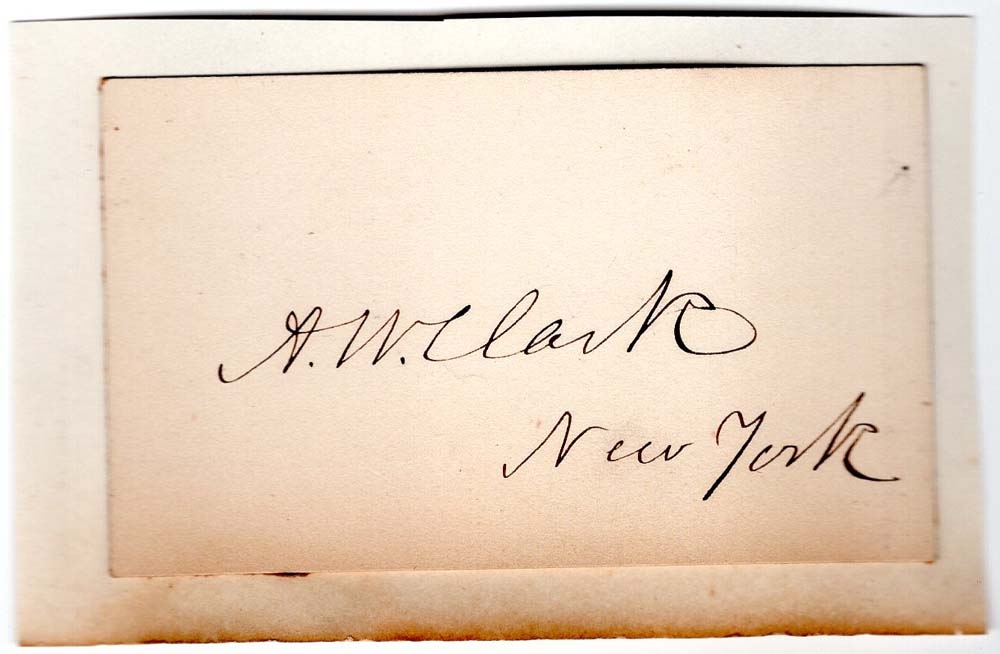 A. W. Clark
New York